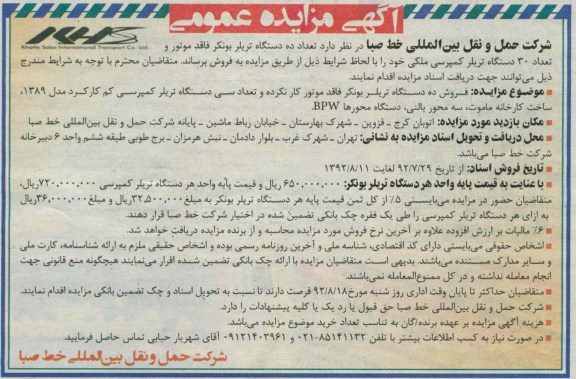 آگهی مزایده عمومی
KHS
Khatte Saba International Transport Co. Ltd.
شرکت حمل و نقل بین‌المللی خط صبا در نظر دارد تعداد ده دستگاه تریلر بونکر فاقد موتور و
تعداد ۳۰ دستگاه تریلر کمپرسی ملکی خود را با لحاظ شرایط ذیل از طریق مزایده به فروش برساند. متقاضیان محترم با توجه به شرایط مندرج
ذیل می‌توانند جهت دریافت اسناد مزایده اقدام نمایند.
■ موضوع مزایـده: فـروش ده دستگاه تریلـر بونکر فاقد موتور کار نکرده و تعداد سـی دستگاه تریلر کمپرسـی کم کارکـرد مدل ۱۳۸۹،
ساخت کارخانه ماموت، سه محور بالنی، دستگاه محورها BPW.
■ مکان بازدید مورد مزایده: اتوبان کرج – قزویـن – شهرک بهارستان – خیابان رباط ماشین – پایانه شرکت حمل و نقل بین‌المللی خط صبا
■ محل دریافت و تحویل اسناد مزایده به نشانی: تهران – شهرک غرب – بلوار دادمان – نبش هرمزان – برج طوبی طبقه ششم واحد ۶ دبیرخانه
شرکت خط صبا می‌باشد.
■ تاریخ فروش اسناد: از تاریخ ۹۲/۷/۲۹ لغایت ۱۳۹۲/۸/۱۱
■ با عنایت به قیمت پایه واحد هر دستگاه تریلر بونکر: ۶۵۰,۰۰۰,۰۰۰ ریال و قیمت پایه واحد هر دستگاه تریلر کمپرسی ۷۲۰,۰۰۰,۰۰۰ ریال،
متقاضیان حضور در مزایده می‌بایستـی ۵٪ از کل ثمن قیمت پایه هر دستگاه تریلر بونکر به مبلغ ۳۲,۵۰۰,۰۰۰ ریال و مبلغ ۳۶,۰۰۰,۰۰۰ ریال
به ازای هر دستگاه تریلر کمپرسی را طی یک فقره چک بانکی تضمین شده در اختیار شرکت خط صبا قرار دهند.
■ ۶٪ مالیات بر ارزش افزوده علاوه بر آخرین نرخ فروش مورد مزایده محاسبه و از برنده مزایده دریافت خواهد شد.
■ اشخاص حقوقی می‌بایستی دارای کد اقتصادی، شناسه ملی و آخرین روزنامه رسمی بوده و اشخاص حقیقی ملزم به ارائه شناسنامه، کارت ملی
و سایر مدارک مستنده می‌باشند. بدیهی است متقاضیان مزایده با ارائه چک بانکی تضمین شـده اقرار می‌نمایند هیچگونه منع قانونی جهت
انجام معامله نداشته و در کل ممنوع‌المعامله نمی‌باشند.
■ متقاضیان حداکثر تا پایان وقت اداری روز شنبه مورخ ۹۲/۸/۱۸ فرصت دارند تا نسبت به تحویل اسناد و چک تضمین بانکی مزایده اقدام نمایند.
■ شرکت حمل و نقل بین‌المللی خط صبا حق قبول یا رد یک یا کلیه پیشنهادات را دارد.
■ هزینه آگهی مزایده بر عهده برنده/گان به تناسب تعداد خرید موضوع مزایده می‌باشد.
■ در صورت نیاز به کسب اطلاعات بیشتر با تلفن ۸۵۱۴۱۱۳۲-۰۲۱ و ۰۹۱۲۱۴۰۳۹۶۱ آقای شهریار حبابی تماس حاصل فرمایید.
شرکت حمل و نقل بین‌المللی خط صبا